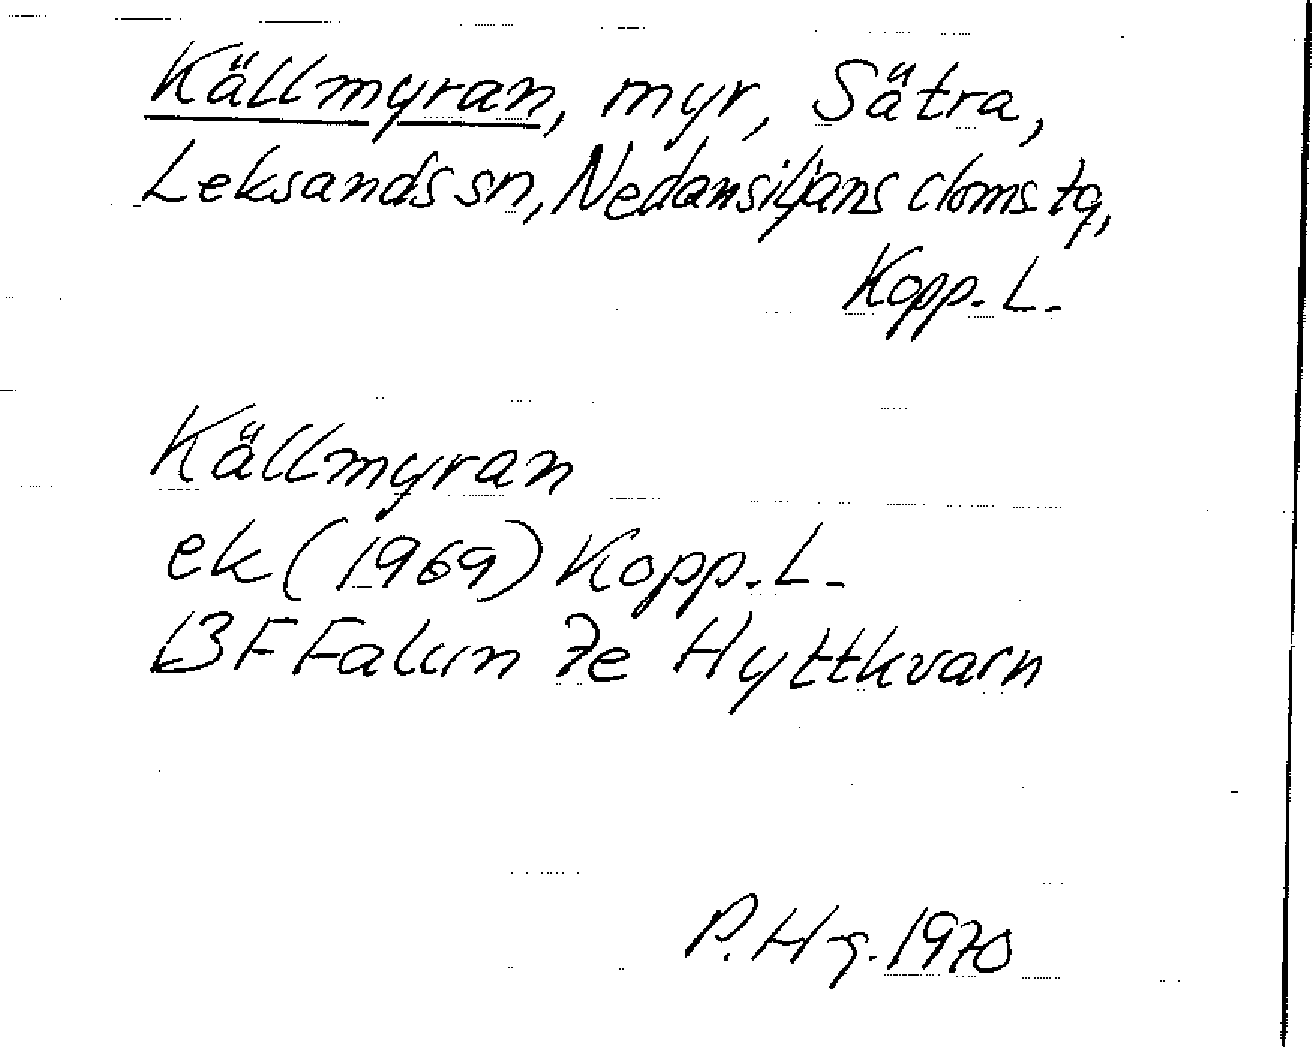 Källmyran, myr, Sätra,
Leksands sn, Nedansiljans domstg,
Kopp. L.
Källmyran
ek (1969) Kopp. L.
13F Falun 7e Hyttkvarn
P. Hg. 1970